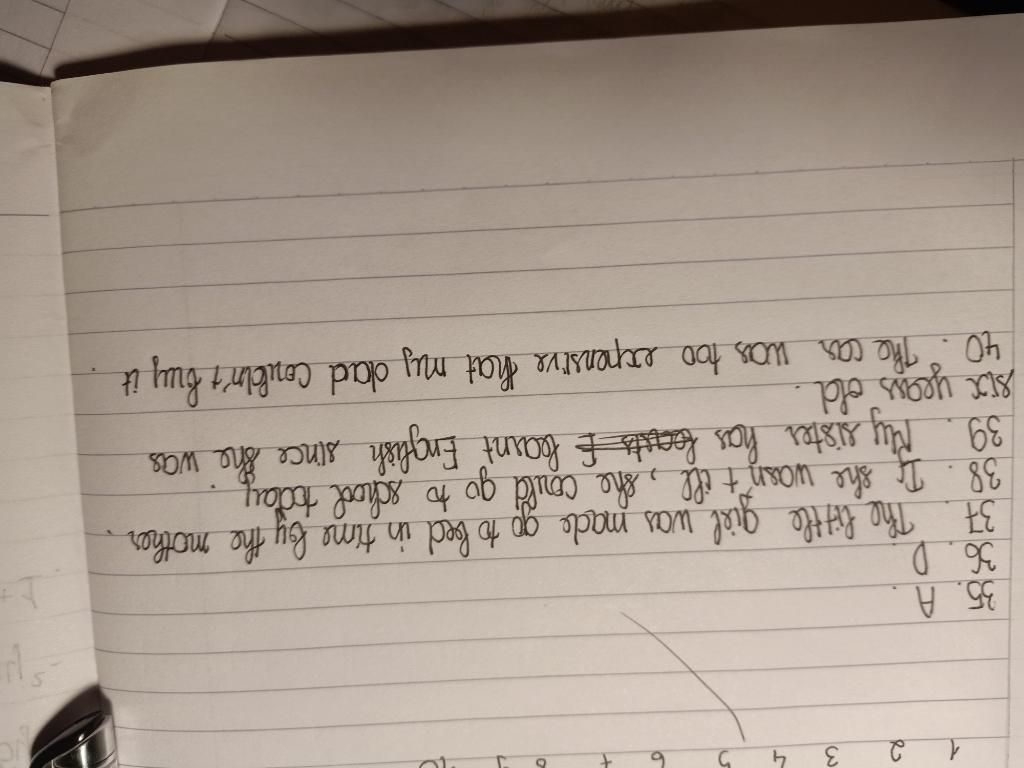 1 2 3 4 5 6 7 8 9 10
35. A.
36. D
37. The little girl was made go to bed in time by the mother.
38. If she wasn't ill, she could go to school today.
39. My sister has learnt English since she was
six years old.
40. The car was too expensive that my dad couldn't buy it.